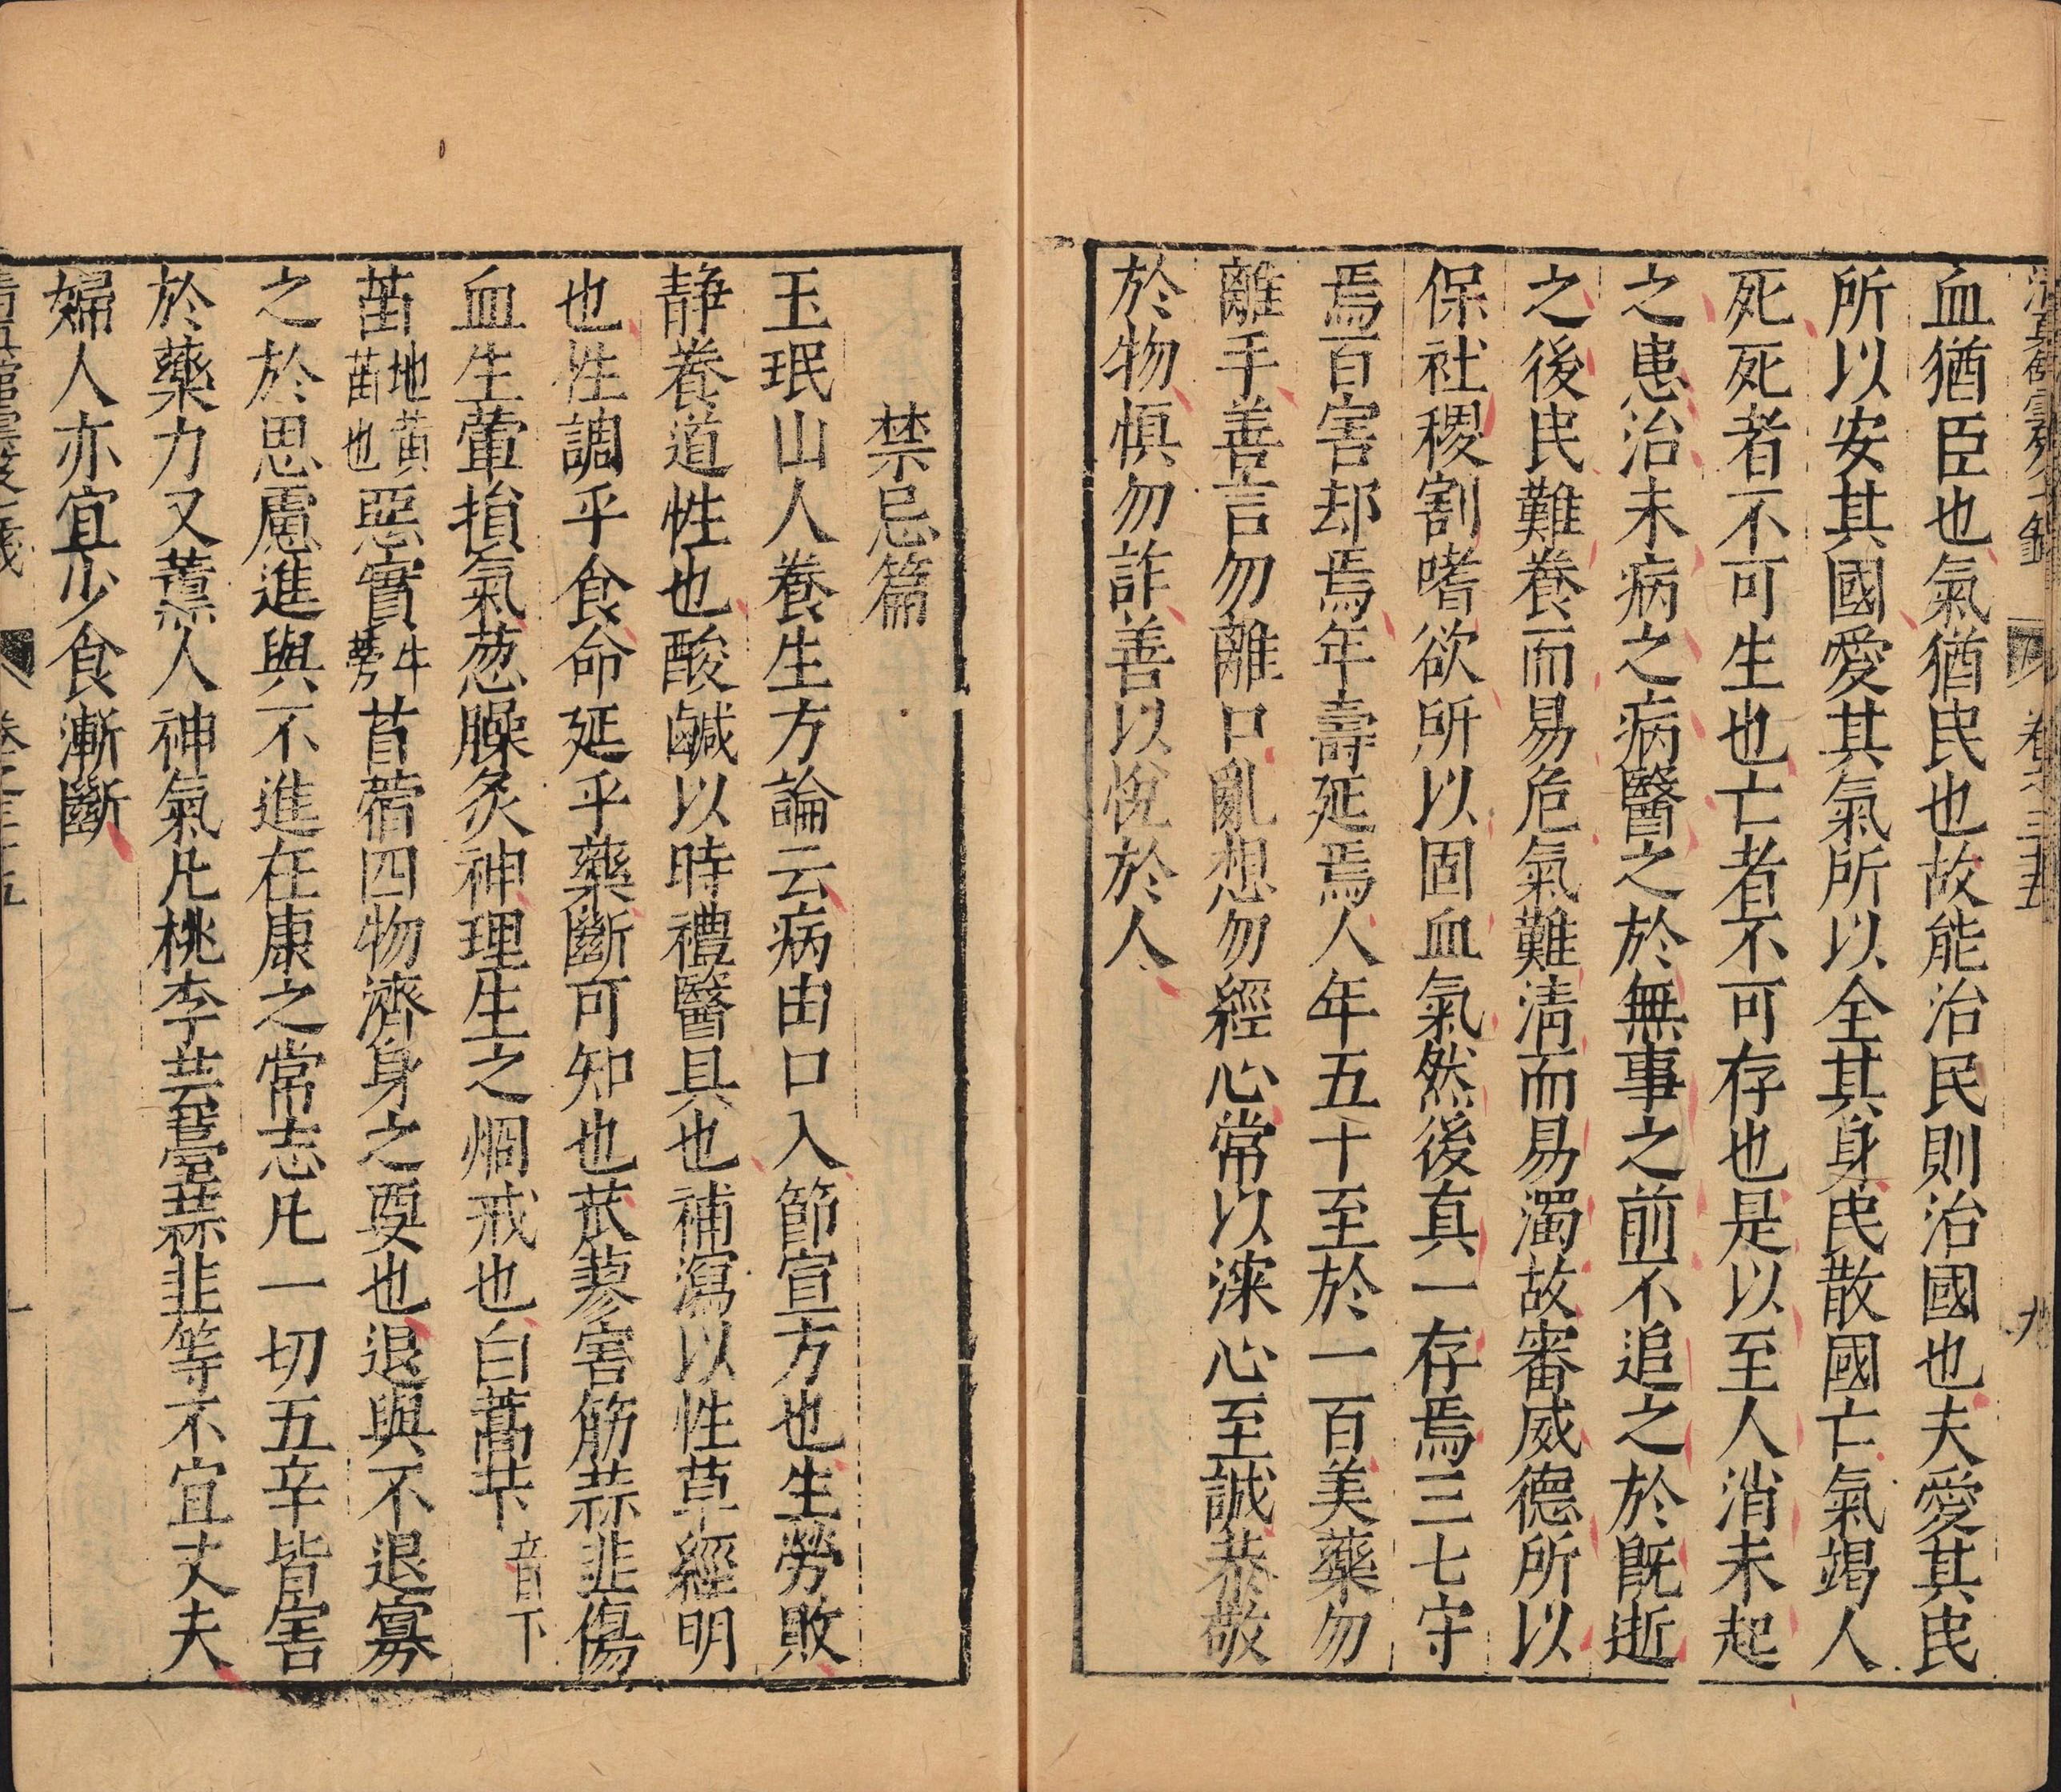 卷之三五 九
血猶臣也氣猶民也故能治民則治國也夫愛其民
所以安其國愛其氣所以全其身民散國亡氣竭人
死死者不可生也亡者不可存也是以至人消未起
之患治未病之病醫之於無事之前不追之於旣逝
之後民難養而易危氣難淸而易濁故審威德所以
保社稷割嗜欲所以固血氣然後真一存焉三七守
焉百害却焉年壽延焉人年五十至於一百美藥勿
離手善言勿離口亂想勿經心常以深心至誠恭敬
於物慎勿詐善以悅於人
禁忌篇
玉珉山人養生方論云病由口入節宣方也生勞敗
静養道性也酸鹹以時禮醫具也補瀉以性草經明
也性調乎食命延乎藥斷可知也葱蓼害筋蒜韭傷
血生葷損氣葱臊炙神理生之烱戒也白蒿芐音下
苗地黃苗也惡實牛蒡苜蓿四物濟身之要也退與不退寡
之於思慮進與不進在康之常志凡一切五辛皆害
於藥力又薰人神氣凡桃李芸薹蒜韭等不宜丈夫
婦人亦宜少食漸斷